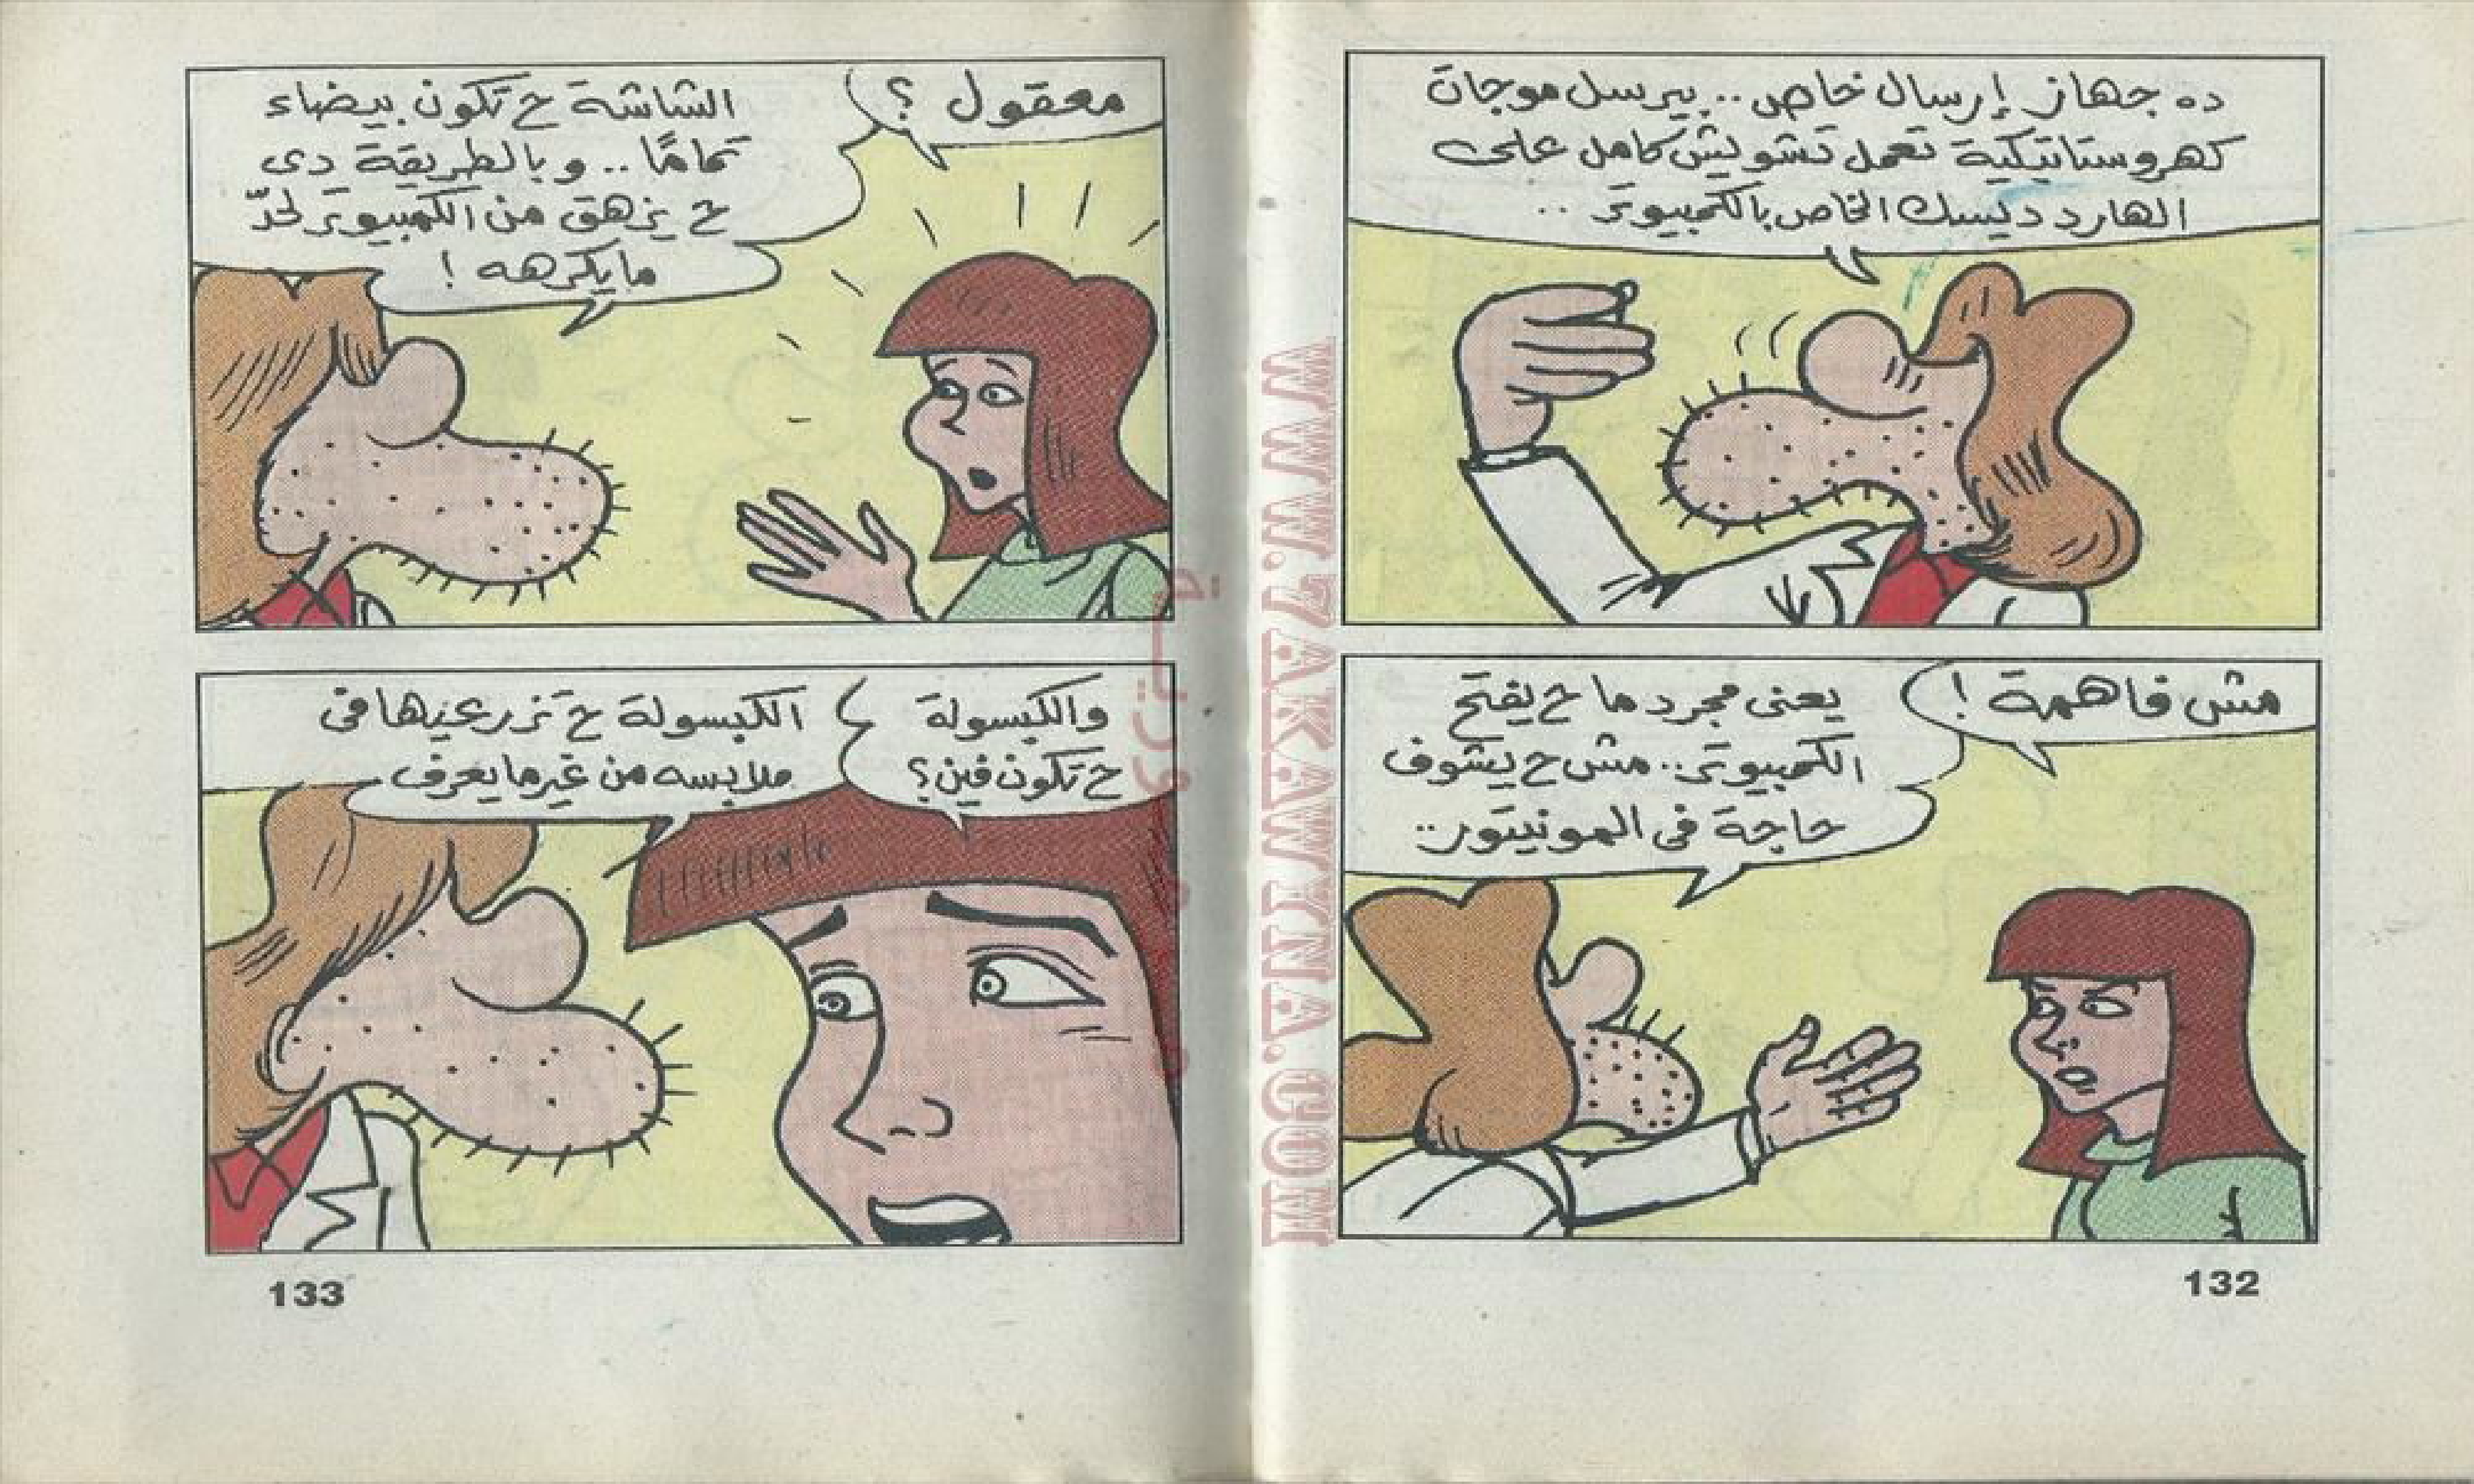 ده جهاز إرسال خاص.. بيرسل موجات
كهروستاتيكية تعمل تشويش كامل على
الهارد ديسك الخاص بالكمبيوتر..
مش فاهمة!
يعنى مجرد ما ح يفتح
الكمبيوتر.. مش ح يشوف
حاجة فى المونيتور..
132
معقول؟
الشاشة ح تكون بيضاء
تمامًا.. وبالطريقة دى
ح يزهق من الكمبيوتر لحدّ
ما يكرهه!
والكبسولة
ح تكون فين؟
الكبسولة ح تزرعيها فى
ملابسه من غير ما يعرف
133
WWW.ZAKAWYNA.COM